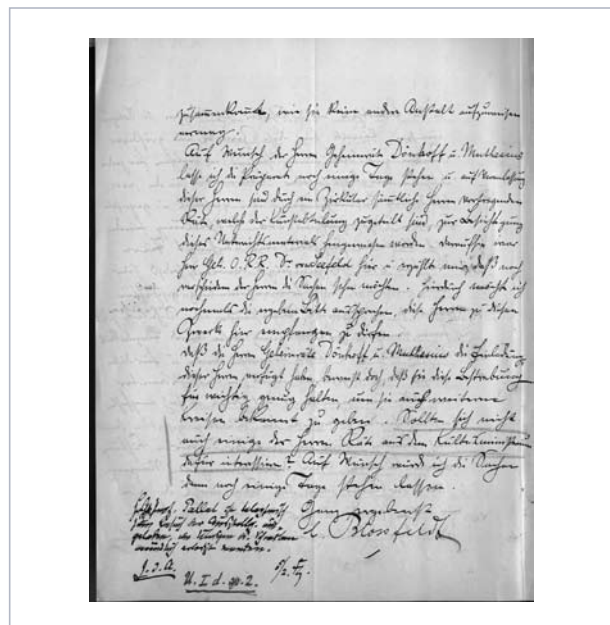 zusammenkommt, wie sie keine andere Anstalt aufzuweisen
vermag.
Auf Wunsch der Herren Geheimräte Dönhoff u. Muthesius
lasse ich die Präparate noch einige Tage stehen u. auf Veranlassung
dieser Herren sind durch ein Zirkular sämtliche Herren vortragenden
Räte, welche der Kunstabteilung zugeteilt sind, zur Besichtigung
dieses Unterrichtsmaterials hingewiesen worden. Daraufhin war
Herr Geh. O.R.R. Dr. von Seefeld hier u. erzählte mir, daß noch
verschiedene der Herren die Sachen sehen möchten. Hierdurch möchte ich
nochmals die ergebene Bitte aussprechen, diese Herren zu diesem
Zweck hier empfangen zu dürfen.
Daß die Herren Geheimräte Dönhoff u. Muthesius die Einladung
dieser Herren verfügt haben, beweist doch, daß sie diese Bestrebung
für wichtig genug halten, um sie auch weiteren
Kreisen bekannt zu geben. Sollten sich nicht
auch einige der Herren Räte aus dem Kultusministerium
dafür interessieren? Auf Wunsch würde ich die Sachen
dann noch einige Tage stehen lassen.
Ganz ergebenst
Blossfeldt
J. d. A.
U. I d. gr. 2.